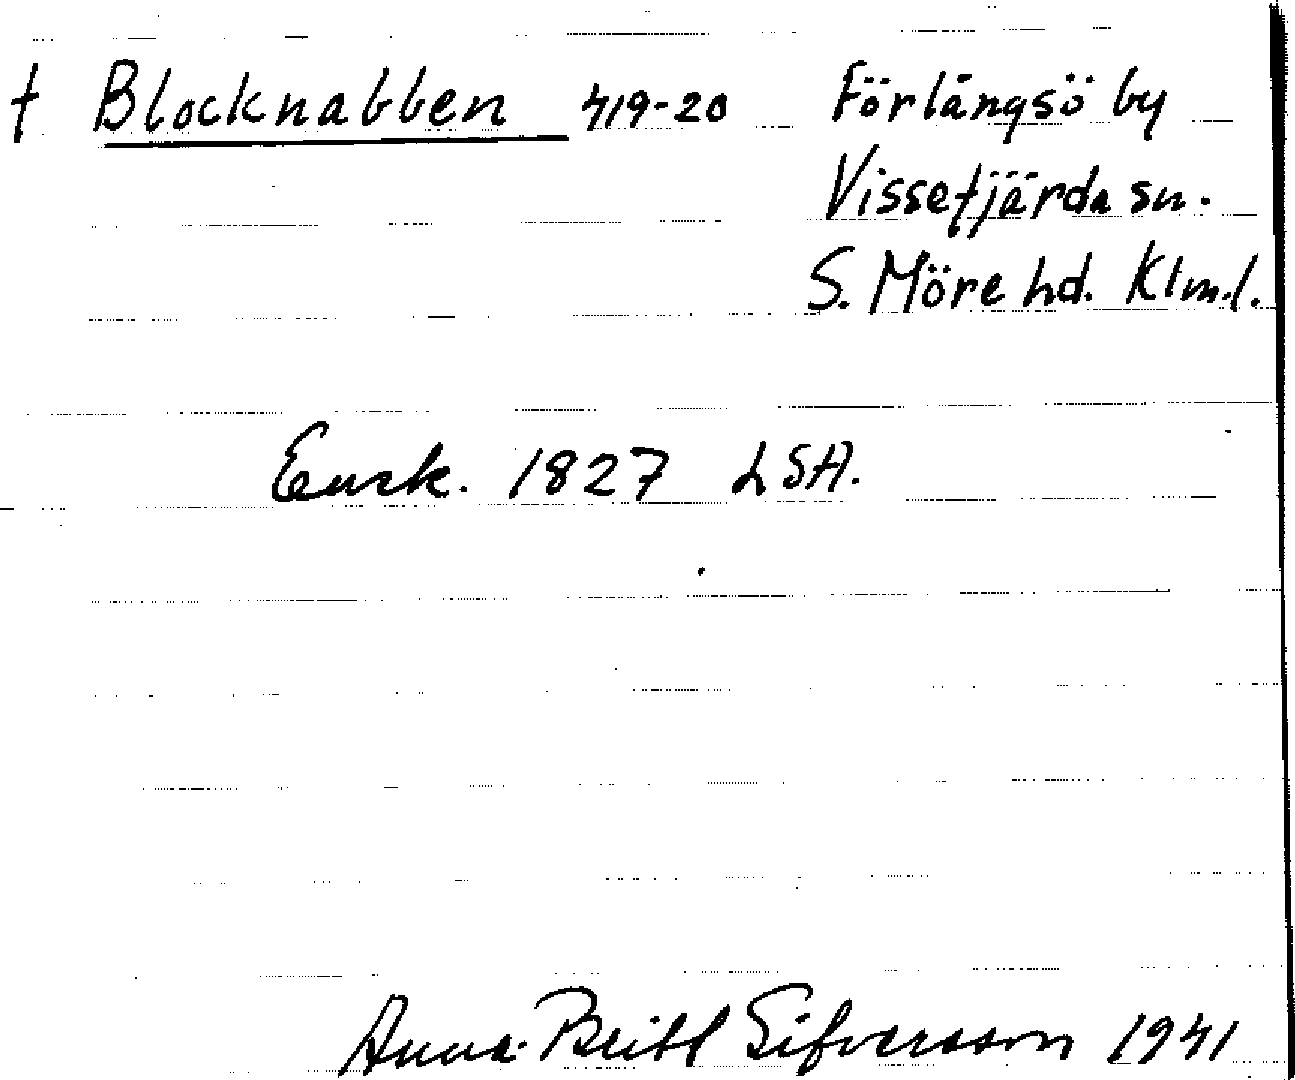 † Blocknabben 419-20 Förlångsö by
Vissefjärda sn.
S. Möre hd. Klm.l.
Ensk. 1827 LSA.
Anna-Britt Sifversson 1941